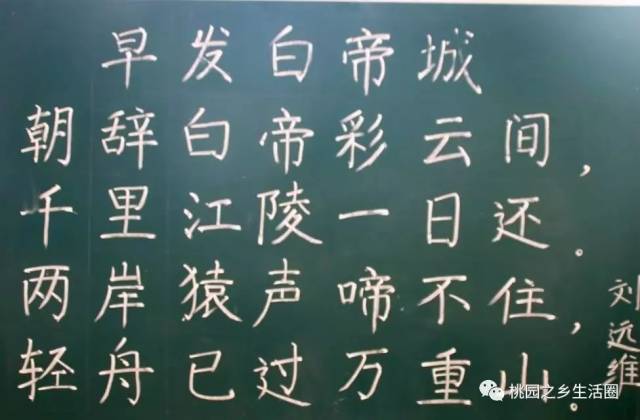 早发白帝城
朝辞白帝彩云间，
千里江陵一日还。
两岸猿声啼不住，
轻舟已过万重山。
刘远维
桃园之乡生活圈